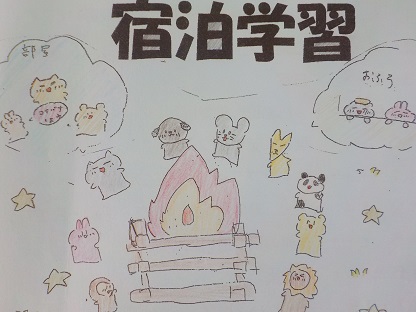 宿泊学習
部屋
おふろ